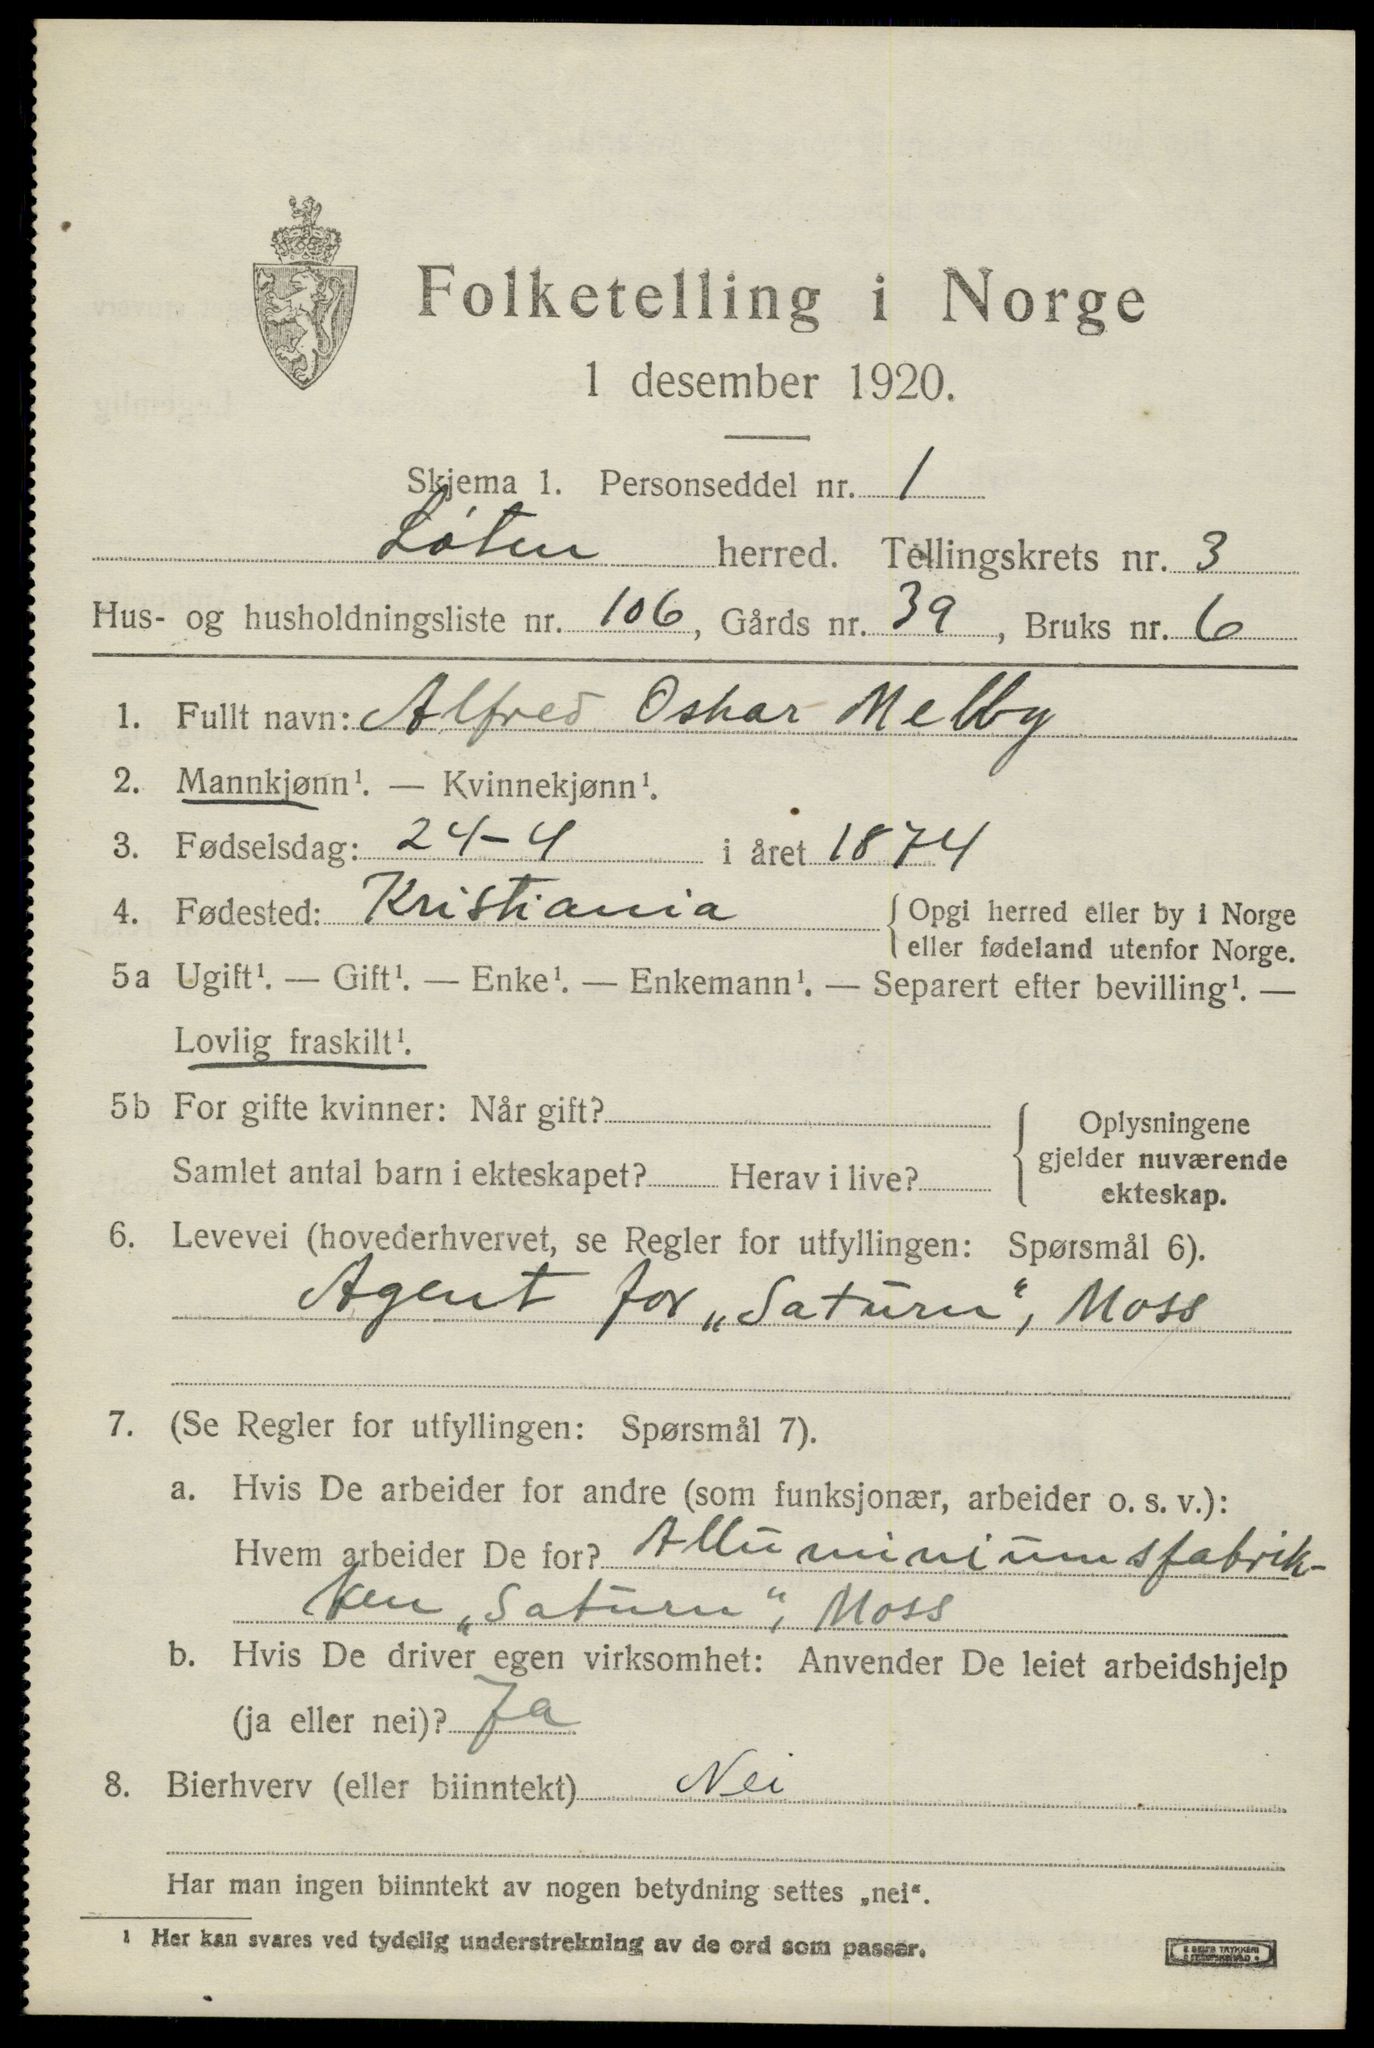 Folketelling i Norge
1 desember 1920.
Skjema 1. Personseddel nr. 1
Løten herred. Tellingskrets nr. 3
Hus- og husholdningsliste nr. 106, Gårds nr. 39, Bruks nr. 6
1. Fullt navn: Alfred Oskar Melby
2. Mannkjønn¹. — Kvinnekjønn¹.
3. Fødselsdag: 24-4 i året 1874
4. Fødested: Kristiania {Opgi herred eller by i Norge
eller fødeland utenfor Norge.
5a Ugift¹. — Gift¹. — Enke¹. — Enkemann¹. — Separert efter bevilling¹. —
Lovlig fraskilt¹.
5b For gifte kvinner: Når gift?
Samlet antal barn i ekteskapet? Herav i live?
Oplysningene
gjelder nuværende
ekteskap.
6. Levevei (hovederhvervet, se Regler for utfyllingen: Spørsmål 6).
Agent for „Saturn“, Moss
7. (Se Regler for utfyllingen: Spørsmål 7).
a. Hvis De arbeider for andre (som funksjonær, arbeider o. s. v.):
Hvem arbeider De for? Alluminiumsfabrik-
ken „Saturn“, Moss
b. Hvis De driver egen virksomhet: Anvender De leiet arbeidshjelp
(ja eller nei)? Ja
8. Bierhverv (eller biinntekt) Nei
Har man ingen biinntekt av nogen betydning settes „nei“.
¹ Her kan svares ved tydelig understrekning av de ord som passer.